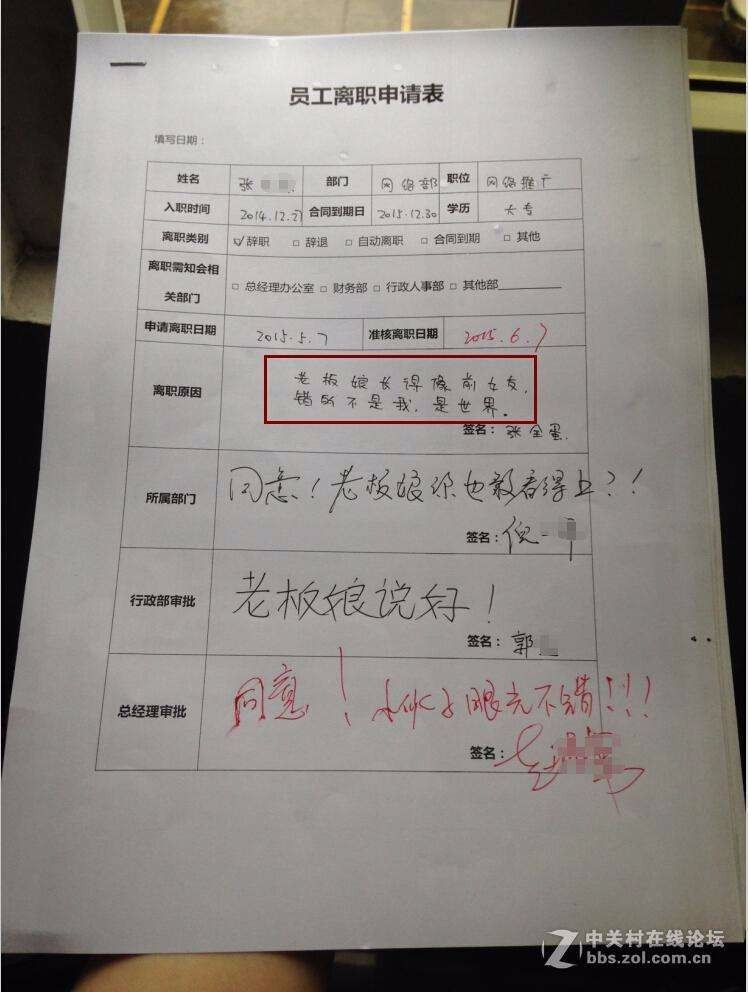 员工离职申请表
填写日期：
姓名 张 部门 网络部 职位 网络推广
入职时间 2014.12.27 合同到期日 2015.12.30 学历 大专
离职类别 ☑辞职 □辞退 □自动离职 □合同到期 □其他
离职需知会相
关部门 □总经理办公室 □财务部 □行政人事部 □其他部
申请离职日期 2015.5.7 准核离职日期 2015.6.7
离职原因 老板娘长得像前女友,
错的不是我,是世界。
签名：张全蛋
所属部门 同意！老板娘你也敢看得上？！
签名：倪
行政部审批 老板娘说好！
签名：郭
总经理审批 同意！小伙子眼光不错!!!
签名：
中关村在线论坛
bbs.zol.com.cn